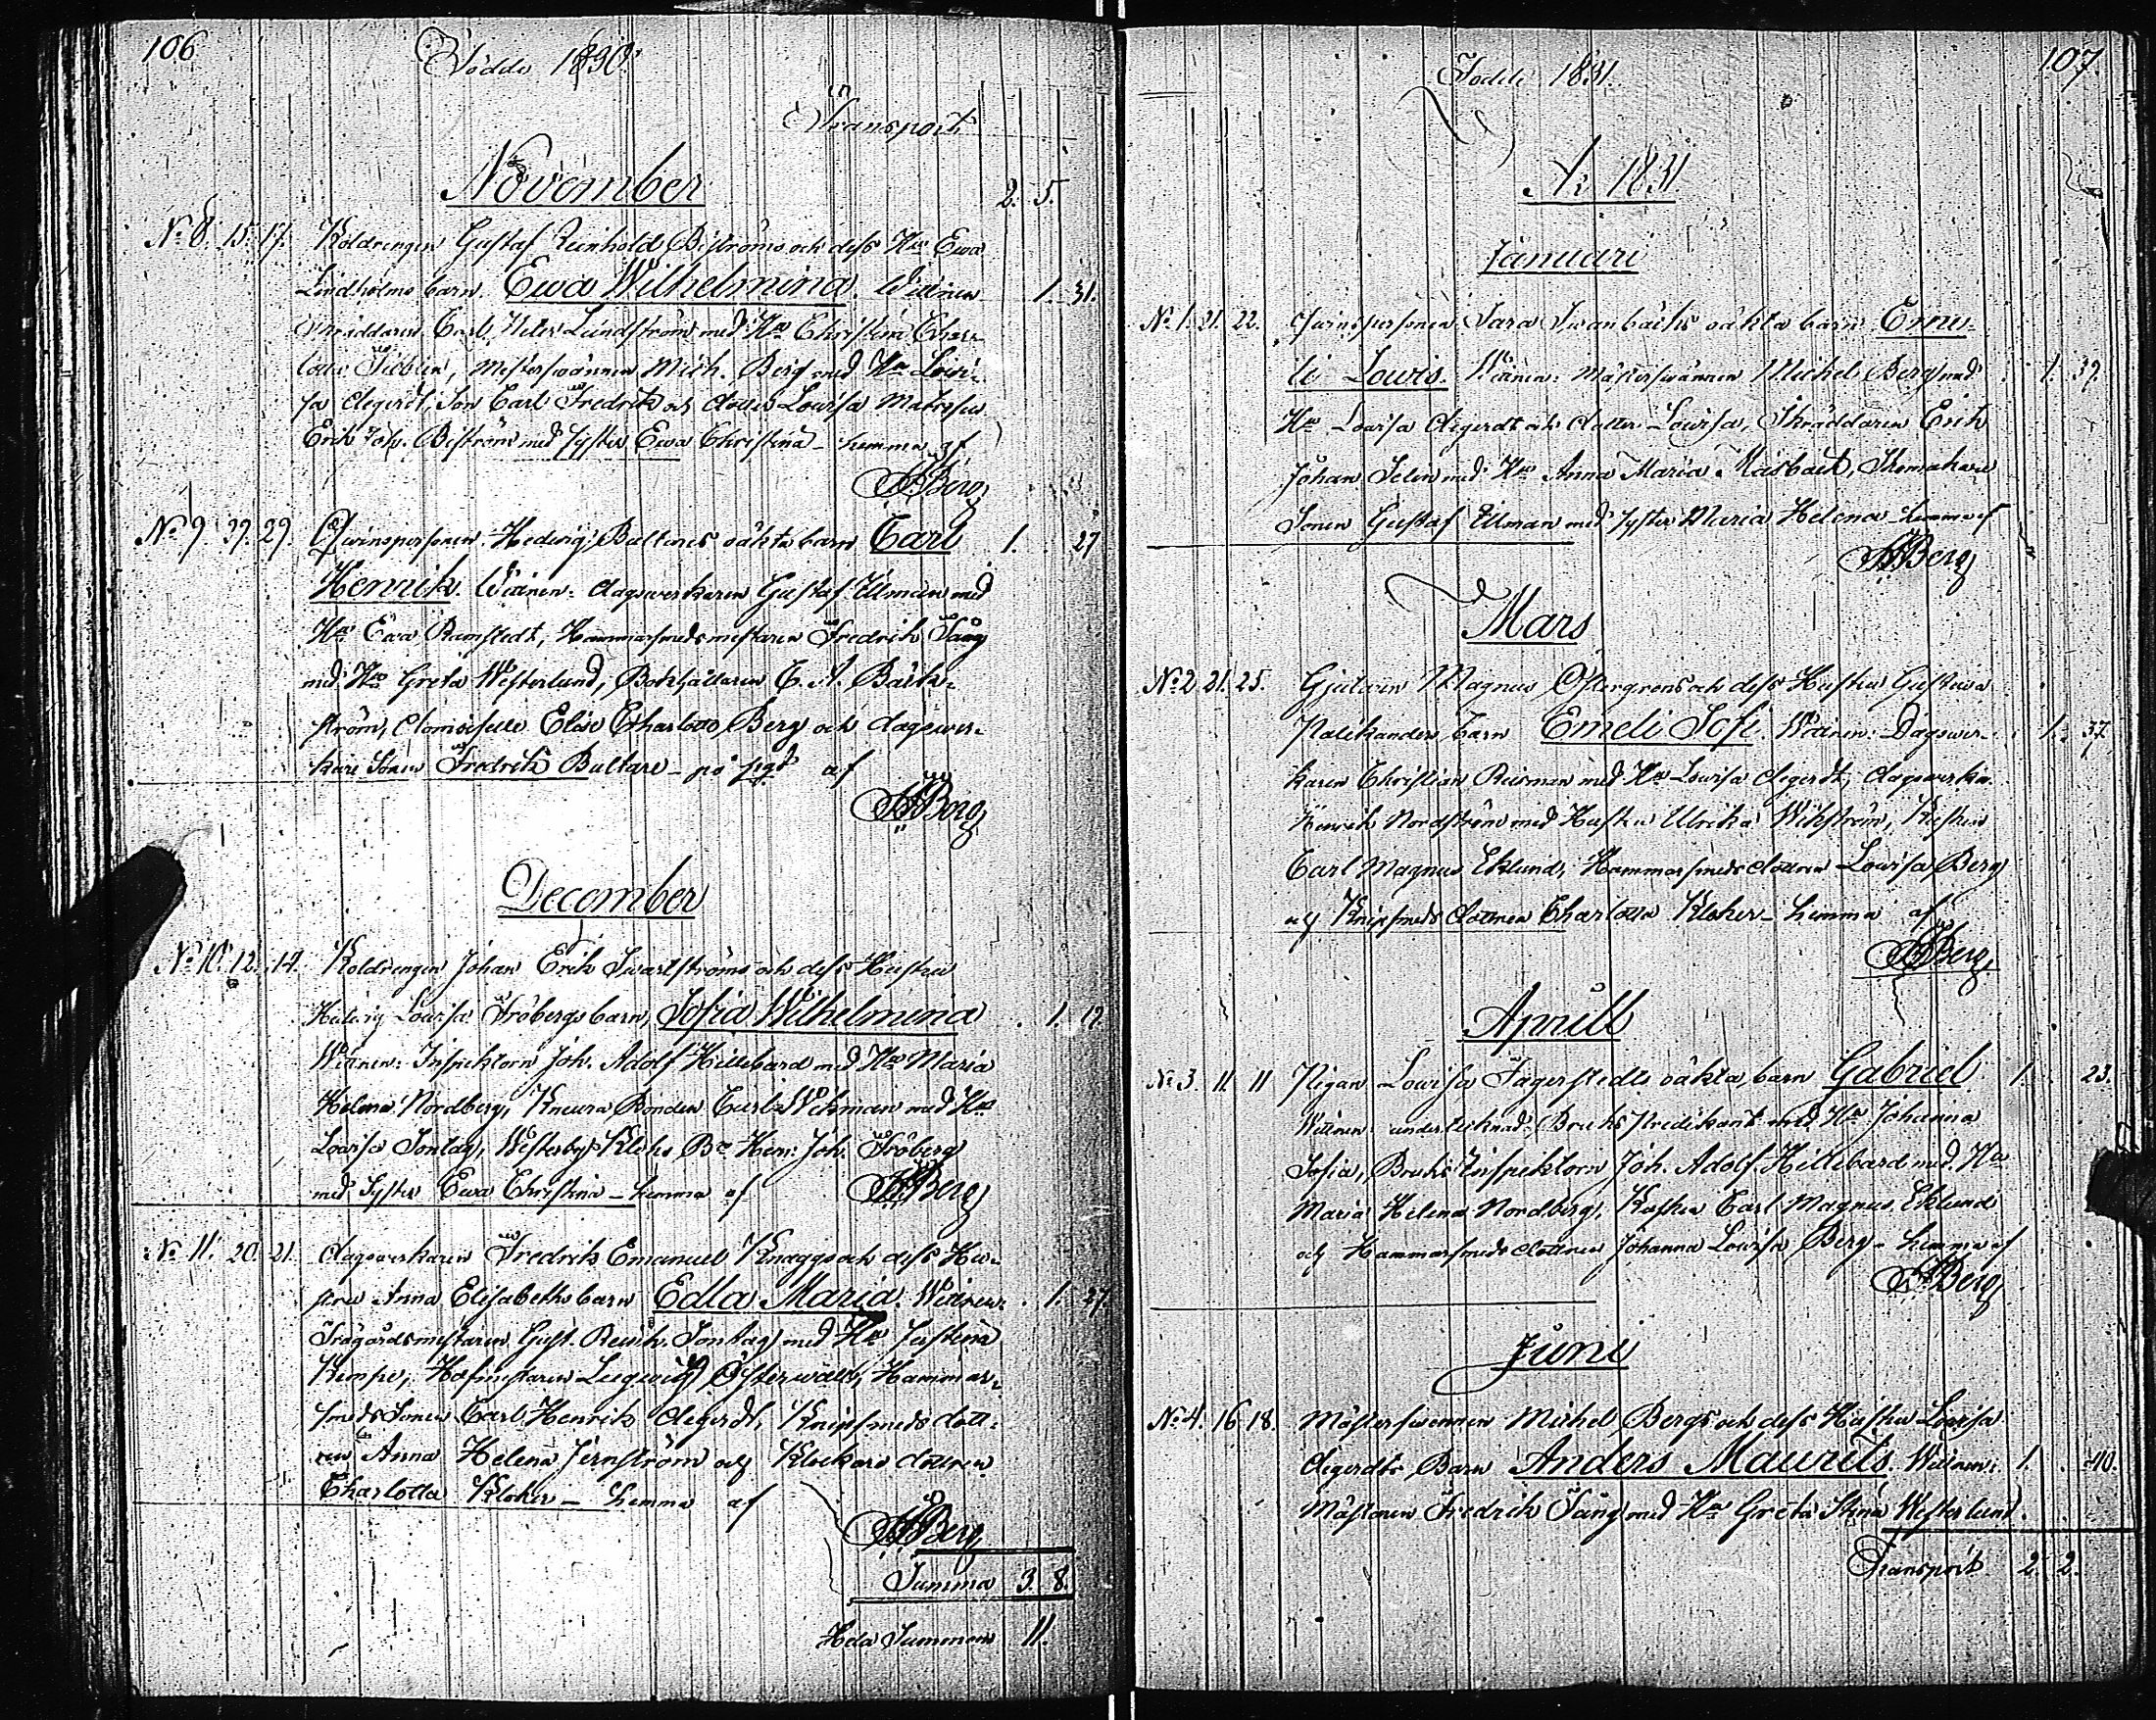 106
Födde 1830.
Transport
November
2. 5.
No 8. 15. 17. Koldrengen Gustaf Reinhold Biströms och dess Hu Ewa
Lindholms barn Ewa Wilhelmina. Wittnen 1. 31.
Skräddaren Carl Lundström med Hu Christina Char-
lotta Mästersvännen Mich. Berg med Hu Lowi-
sa Degerdt, Son Carl Fredrik och dotter Lowisa
Erik Joh. Biström med Syster Ewa Christina – hemma af
Berg
No 9. 27. 29. Qvinspersonen Hedvig Bultares oäkta barn Carl 1. 27
Henrik. Wittnen: dagsverkaren Gustaf Ullman med
Hu Ewa Ramstedt, Hammarsmedsmästaren Fredrik Tång
med Hu Greta Westerlund, Bokhållaren C. A. Bäck-
ström, Demoiselle Elise Charlotta Berg och dagsver-
kare Sonen Fredrik Bultare – af
Berg
December
No 10. 12. 14. Koldrengen Johan Erik Swartströms och dess Hustru
Hedvig Lowisa Fröbergs barn, Sofia Wilhelmina . 1. 19.
Wittnen: Inspektorn Joh. Adolf Hillebard med Hu Maria
Helena Nordberg, Bonden Carl Wikman med Hu
Lowisa Sontag, Westerby Joh. Fröberg
med Syster Ewa Christina – hemma af Berg
No 11. 20. 21. dagsverkaren Fredrik Emanuel Knaggs och dess Hu-
stru Anna Elisabeths barn Edla Maria. Wittnen: 1. 27.
Trägårdsmästaren Gust. Reinh. Sontag med Hu Justina
Kempe, Hofmästaren Österwall, Hammar-
smeds Sonen Carl Henrik Degerdt, Knipsmeds dott-
ren Anna Helena Jernström och Klockars dottren
Charlotta Kloker – hemma af
Berg
Summa 3. 8.
Hela Summan 11.
107.
Födde 1831.
Ar 1831
Januari
No 1. 21. 22. Qvinspersonen Sara Swanbäcks oäkta barn Eme-
li Lowis. Wittnen: Mästersvännen Michel Berg med 1. 39.
Hu Lowisa Degerdt och dotter Lowisa, Skräddaren Erik
Johan Selin med Hu Anna Maria Skomakare
Sonen Gustaf Ullman med Syster Maria Helena – hemma af
Berg
Mars
No 2. 21. 25. Gjutaren Magnus Östergrens och dess Hustru Gustava
Palikanders, Barn Emeli Sofi. Wittnen: Dagsver- 1. 37.
karen Christian Reisman med Hu Lowisa Degerdt, dagsverka.
Henrik Nordström med Hustru Ulrika Wikström, Kusken
Carl Magnus Eklund, Hammarsmeds dottren Lowisa Berg
och Knipsmeds dottren Charlotta Kloker – hemma af
Berg
Aprill
No 3. 11. 11 Pigan Lowisa Fagerstedts oäkta barn Gabriel 1. 23.
Wittnen: undertecknad Bruks Predikant med Hu Johanna
Sofia, Bruks Inspektorn Joh. Adolf Hillebard med Hu
Maria Helena Nordberg, Kusken Carl Magnus Eklund
och Hammarsmeds dottren Johanna Lowisa Berg – hemma af
Berg
Juni
No 4. 16. 18. Mästersvännen Michel Bergs och dess Hustru Lowisa
Degerdts Barn Anders Maurits. Wittnen: 1. 40.
Mästaren Fredrik Tång med Hu Greta Stina Westerlund.
Transport 2. 2.